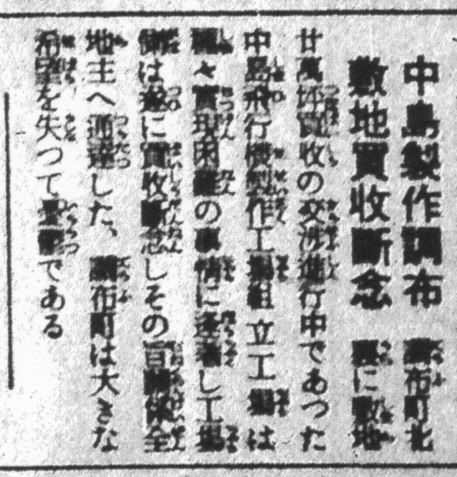 中島製作調布
敷地買收断念
調布町北
裏に敷地
廿萬坪買收の交渉進行中であつた
中島飛行機製作工場組立工場は
種々實現困難の事情に逢着し工場
側は遂に買收断念しその旨關係全
地主へ通達した、調布町は大きな
希望を失つて憂鬱である